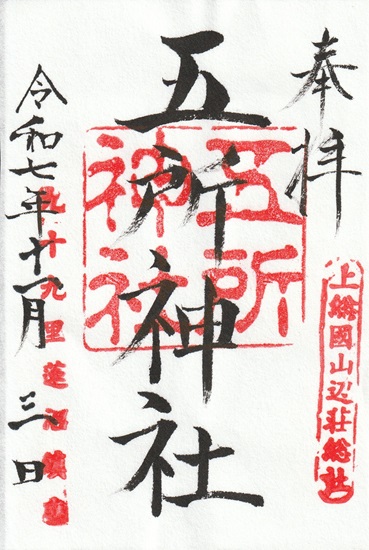 奉拝
上総國山辺荘総社
五所神社
五所神社
令和七年十一月三日
九十九里蓮沼鎮座